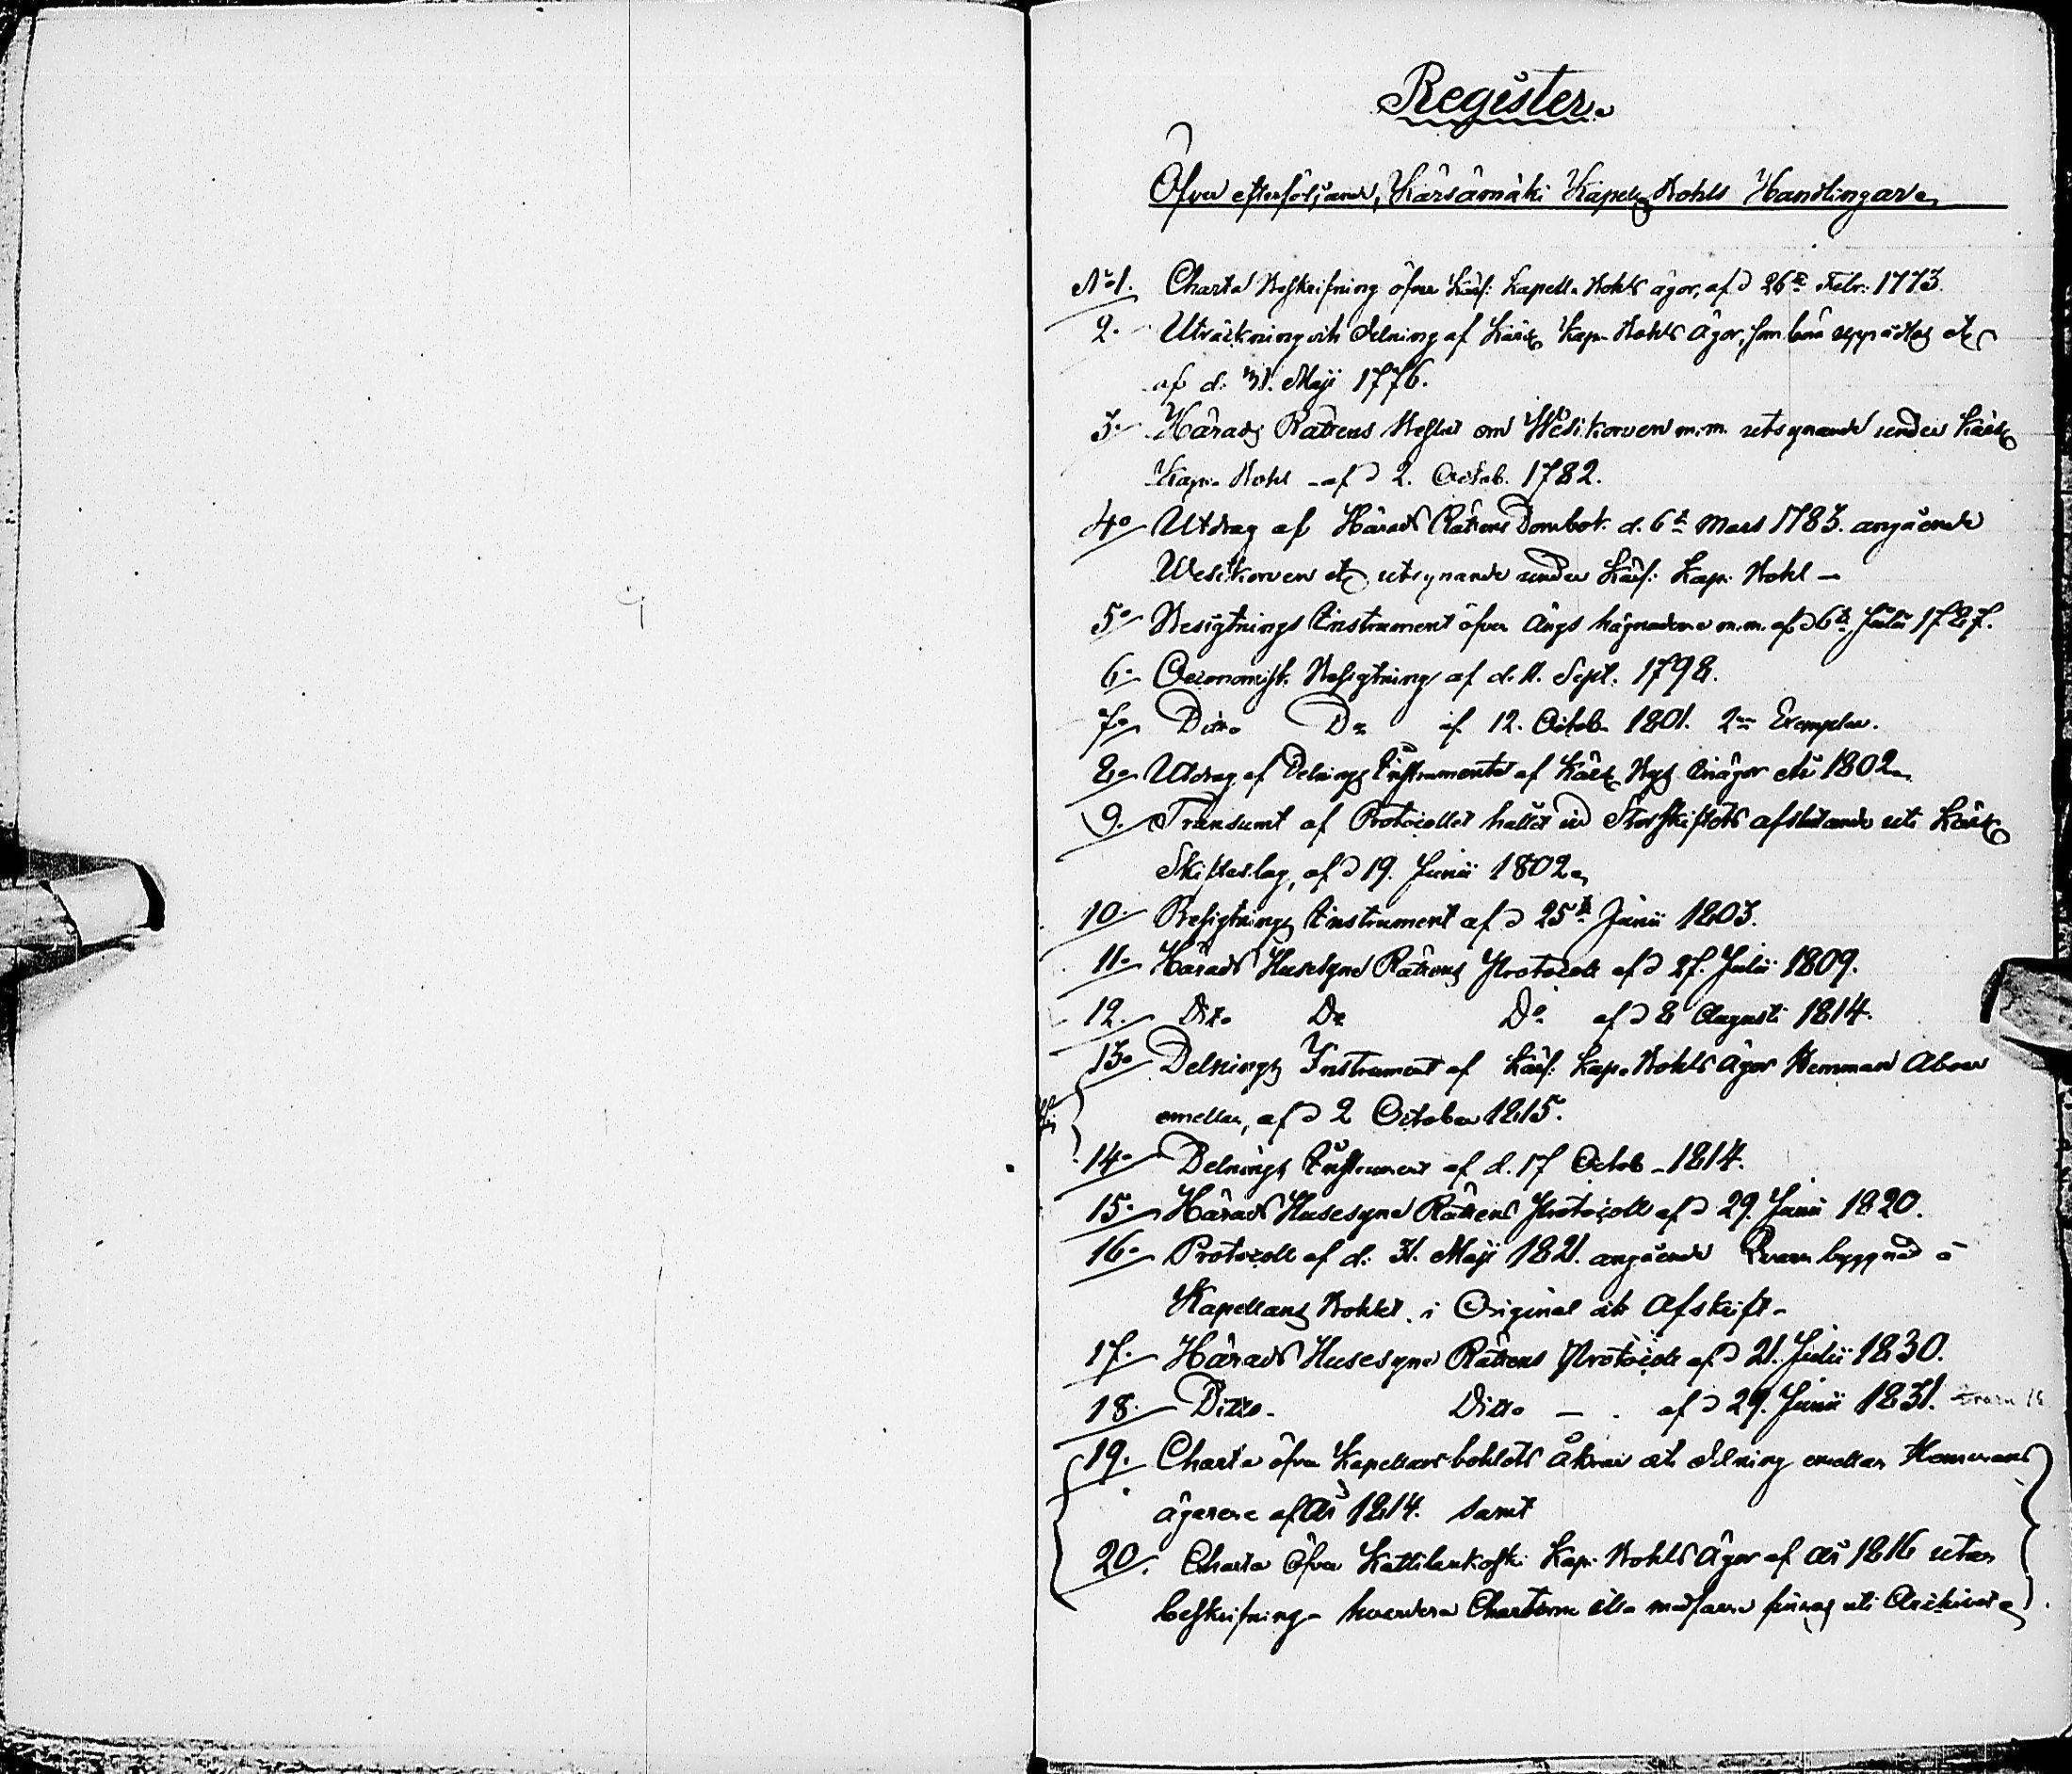 Register
Öfver efterföljande, Kärsämäki Kapell. Bohls Handlingar
No 1. Charta Beskrifning öfver Kärs: Kapell. Bohls ägor, af d 26te Febr: 1773.
2. Uträkning och delning af Kärs. Kap. Bohls Ägor, som böra upprättas etc
af d: 31. Maji 1776.
3. Härads Rättens Beslut om Wesikorven m.m. utsynande under Kärs.
Kap. Bohl - af d 2. Octob. 1782.
4. Utdrag af Härads Rättens Dombok d. 6te Mars 1783. angående
Wesikorven etc utsynande under Kärs: Kap: Bohl -
5. Besigtnings Instrument öfver Ängs hägnaderne m.m. af d 6te Julii 1787.
6. Oeconomisk Besigtning af d. 11. Sept. 1798.
7. Ditto Do af 12. Octob. 1801. 2ne Exemplar.
8. Utdrag af Delnings Instrumentet af Kärs. Bys Inägor År 1802.
9. Transumt af Protocollet hållet vid Storskiftets afslutande uti Kärs.
Skifteslag, af d 19. Junii 1802.
10. Besigtnings Instrument af d 25te Junii 1803.
11. Härads Husesyns Rättens Protocoll af d 27. Julii 1809.
12. Dito Do Do af d 8 Augusti 1814.
13. Delnings Instrument af Kärs: Kap. Bohls Ägor Hemman Åboer
emellan, af d 2 October 1815.
14. Delnings Instrument af d. 17 Octob. 1814.
15. Härads Husesyns Rättens Protocoll af d 29. Junii 1820.
16. Protocoll af d. 31. Maji 1821. angående Qvarn byggnad å
Kapellans Bohlet. i Original och Afskrift.
17. Härads Husesyns Rättens Protocoll af d 21. Julii 1830.
18. Ditto. Ditto - . af d 29. Junii 1831.
19. Charta öfver Kapellansbohlets åkrar och delning emellan Hemmans
ägarene af År 1814. samt
20. Charta Öfver Kattilankoski Kap. Bohls Ägor af År 1816 utan
beskrifning - hvardera Chartorne illa medfarne finnas uti Archivet